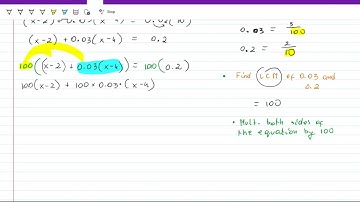 (x-2) + 0.03(x-4) = 0.2
100((x-2) + 0.03(x-4)) = 100(0.2)
100(x-2) + 100×0.03·(x-4)
0.03 = 3/100
0.2 = 2/10
• Find LCM of 0.03 and
0.2
= 100
• Mult. both sides of
the equation by 100